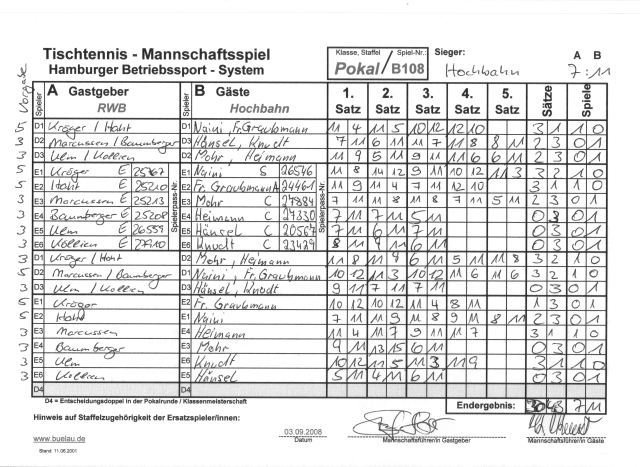 Tischtennis - Mannschaftsspiel
Hamburger Betriebssport - System
Klasse, Staffel Spiel-Nr.:
Pokal / B108
Sieger: Hochbahn
A B
7 : 11
Vorgabe
Spieler A Gastgeber RWB
Spieler B Gäste Hochbahn
1. Satz 2. Satz 3. Satz 4. Satz 5. Satz Sätze Spiele
5 D1 Kröger / Haht D1 Naini, Fr. Graubmann 11 4 11 5 10 12 12 10 3 1 1 0
3 D2 Marcussen / Baumberger D3 Hänsel, Knudt 7 11 6 11 11 7 11 8 8 11 2 3 0 1
3 D3 Ulm / Kollien D2 Mohr, Heimann 11 9 5 11 9 11 11 6 6 11 2 3 0 1
5 E1 Kröger E E1 Naini S 26546
5 E2 Haht E 25210 E2 Fr. Graubmann A 24461 11 9 11 4 7 11 12 10 3 1 1 0
3 E3 Marcussen E 25213 E3 Mohr C 27884 7 11 11 8 11 8 7 11 5 11 2 3 0 1
3 E4 Baumberger E 25208 E4 Heimann C 27330 7 11 7 11 5 11 0 3 0 1
3 E5 Ulm E 26559 E5 Hänsel C 20567 7 11 6 11 7 11 0 3 0 1
3 E6 Kollien E 27910 E6 Knudt C 23429 8 11 9 11 6 11 0 3 0 1
Spielerpass-Nr.
Spielerpass-Nr.
5 D1 Kröger / Haht D2 Mohr, Heimann 3 2 1 0
3 D2 Marcussen / Baumberger D1 Naini, Fr. Graubmann 10 12 12 3 10 12 11 6 11 6 3 2 1 0
3 D3 Ulm / Kollien D3 Hänsel, Knodt 9 11 7 11 7 11 0 3 0 1
5 E1 Kröger E2 Fr. Graubmann 10 12 10 12 11 4 8 11 1 3 0 1
5 E2 Haht E1 Naini 7 11 11 9 11 8 9 11 8 11 2 3 0 1
3 E3 Marcussen E4 Heimann 11 4 11 7 9 11 11 7 3 1 1 0
3 E4 Baumberger E3 Mohr 9 11 13 15 6 11 0 3 0 1
3 E5 Ulm E6 Knudt 10 12 11 5 11 3 11 9 3 1 1 0
3 E6 Kollien E5 Hänsel 5 11 4 11 6 11 0 3 0 1
D4 D4
D4 = Entscheidungsdoppel in der Pokalrunde / Klassenmeisterschaft
Endergebnis: 30 43 7 11
Hinweis auf Staffelzugehörigkeit der Ersatzspieler/innen:
www.buelau.de
Stand: 11.06.2001
03.09.2008
Datum
Mannschaftsführer/in Gastgeber
Mannschaftsführer/in Gäste